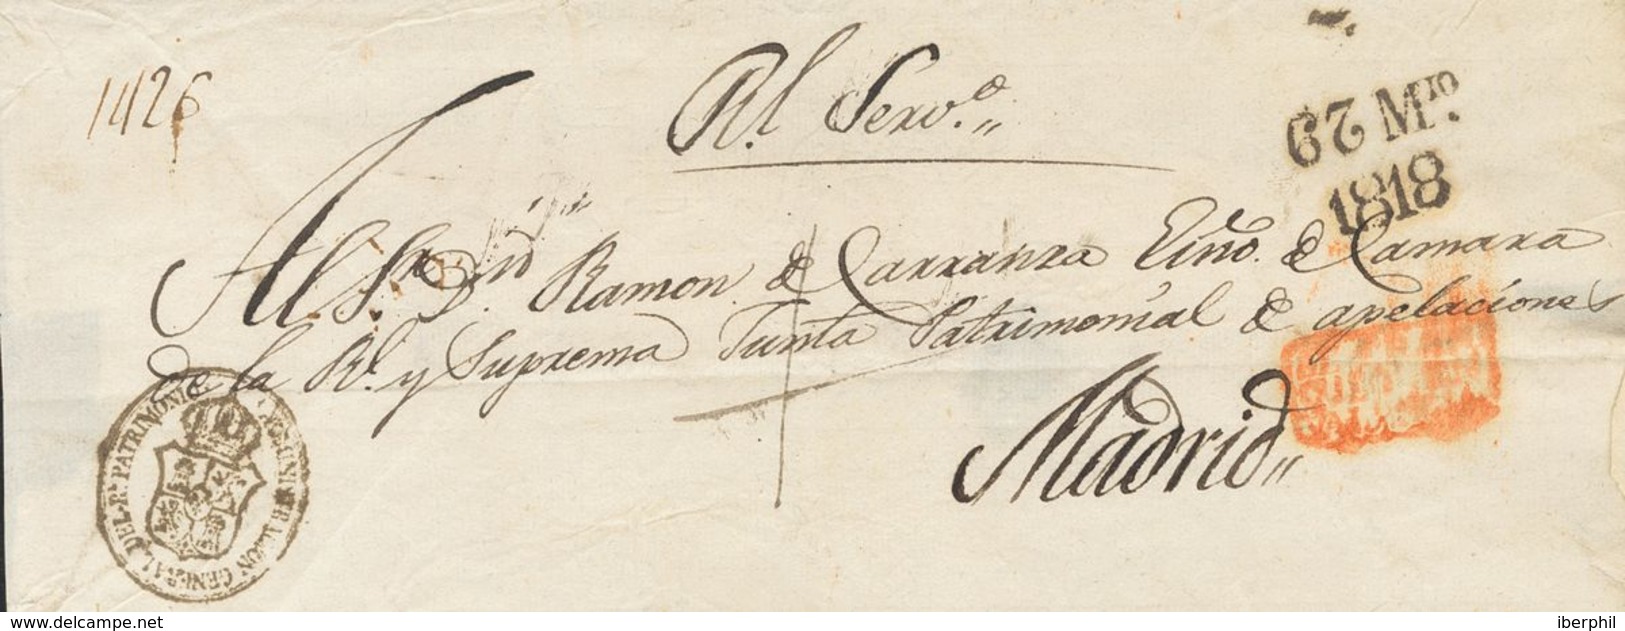 1426
Rl. Servo.
67 Mzo.
1818
Al Sr. Dn. Ramon de Carranza Esno. de Camara
de la Rl. y Suprema Junta Patrimonial de apelaciones
Madrid
DEL Rl. PATRIMONIO
ADMINISTRACION GENERAL
www.delcampe.net
iberphil